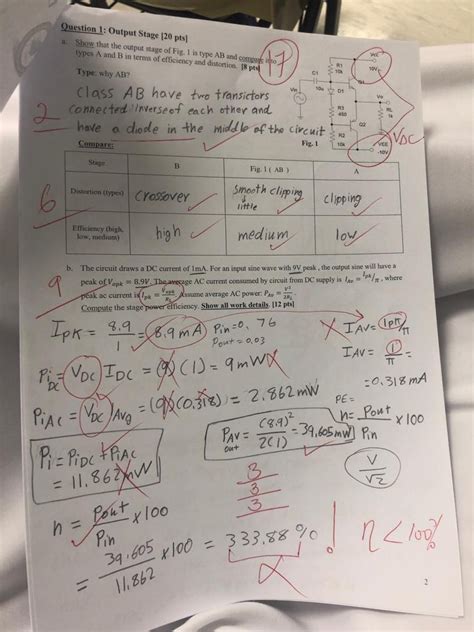 Question 1: Output Stage [20 pts]
a. Show that the output stage of Fig. 1 is type AB and compare it to
types A and B in terms of efficiency and distortion. [8 pts]
17
Type: why AB?
Class AB have two transistors
connected inverse of each other and
have a diode in the middle of the circuit
2
VCC
10V
R1
10k
Q1
C1
10u
D1
Vin
Vo
RL
1k
R3
450
Q2
R2
10k
VEE
-10V
VDC
Fig. 1
Compare:
Stage B Fig. 1 ( AB ) A
Distortion (types) crossover smooth clipping little clipping
Efficiency (high, low, medium) high medium low
6
9
b. The circuit draws a DC current of 1mA. For an input sine wave with 9V peak, the output sine will have a
peak of Vopk = 8.9V. The average AC current consumed by circuit from DC supply is IAV = Ipk/π, where
peak ac current is Ipk = Vopk/RL. Assume average AC power: PAV = V²/2RL.
Compute the stage power efficiency. Show all work details. [12 pts]
IPK = 8.9/1 = 8.9 mA
Pin = 0.76
Pout = 0.03
IAV = Ipk/π
IAV = 1/π = 0.318 mA
PiDC = VDC IDC = (9)(1) = 9mW
PiAC = VDC IAvg = (9)(0.318) = 2.862 mW
PE =
η = Pout/Pin x100
PAV out = (8.9)²/2(1) = 39,605mW
Pi = PiDC + PiAC
= 11.862 mW
V/√2
3
3
3
η = Pout/Pin x100
= 39.605/11.862 x100 = 333.88 %
! η < 100%
2